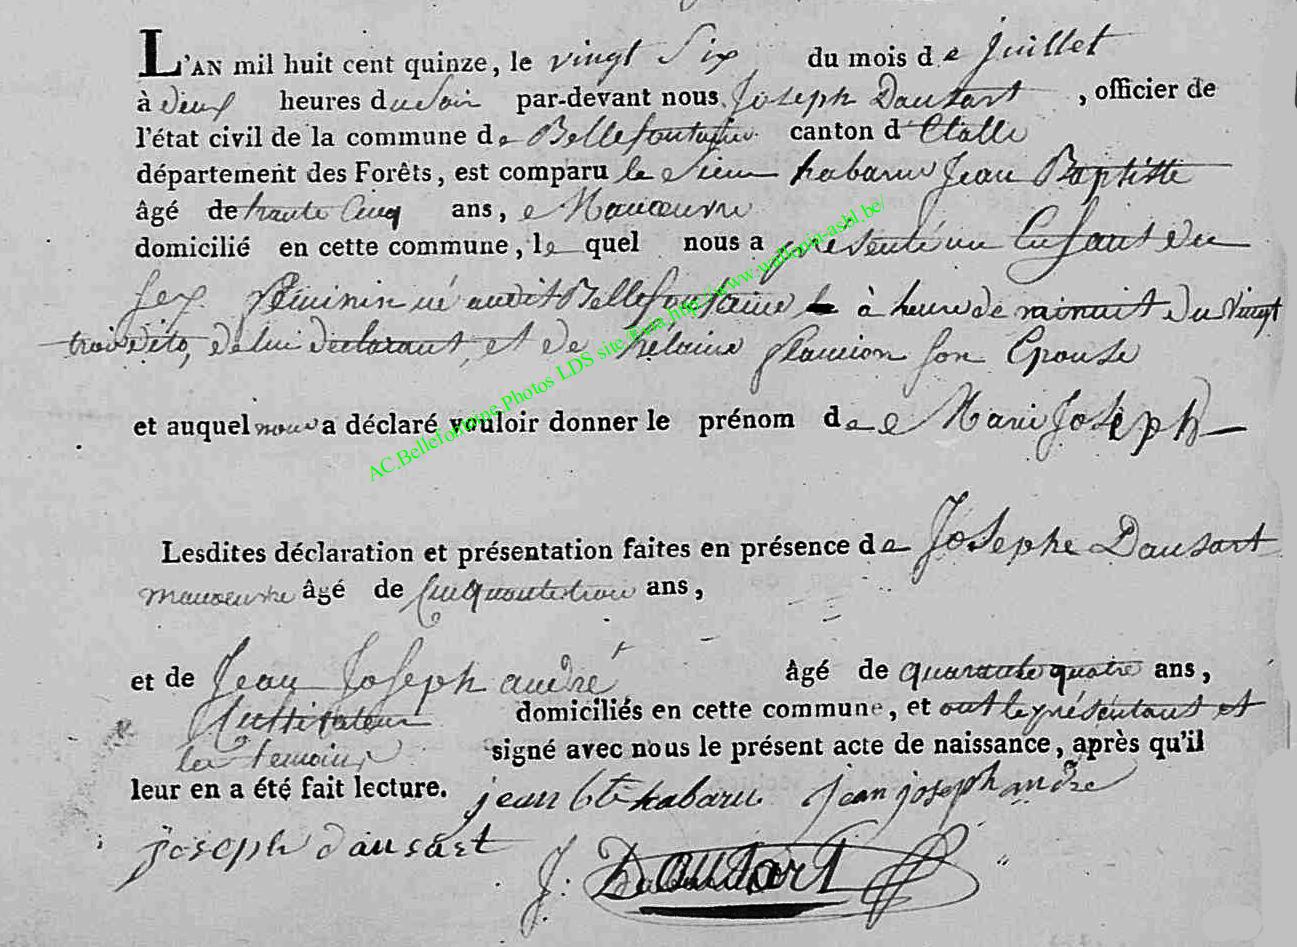 L'AN mil huit cent quinze, le vingt Six du mois de Juillet
à deux heures du soir par-devant nous Joseph Dausart, officier de
l'état civil de la commune de Bellefontaine canton d'Etalle
département des Forêts, est comparu le Sieur habaru Jean Baptiste
âgé de trente Cinq ans, Manoeuvre
domicilié en cette commune, lequel nous a présenté un Enfant du
Sex féminin né audit Bellefontaine à heure de minuit du vingt
trois dito, de lui déclarant et de hélaine flamion son Epouse
et auquel nous a déclaré vouloir donner le prénom de Marie Joseph
Lesdites déclaration et présentation faites en présence de Josephe Dausart
manoeuvre âgé de Cinquante trois ans,
et de Jean Joseph andré âgé de quarante quatre ans,
Cultivateur domiciliés en cette commune, et ont le présentant et
les temoins signé avec nous le présent acte de naissance, après qu'il
leur en a été fait lecture. jean bte habaru jean joseph andre
joseph dausart J. Dausart
AC.Bellefontaine.Photos LDS site Exia http://www.wallonia-asbl.be/